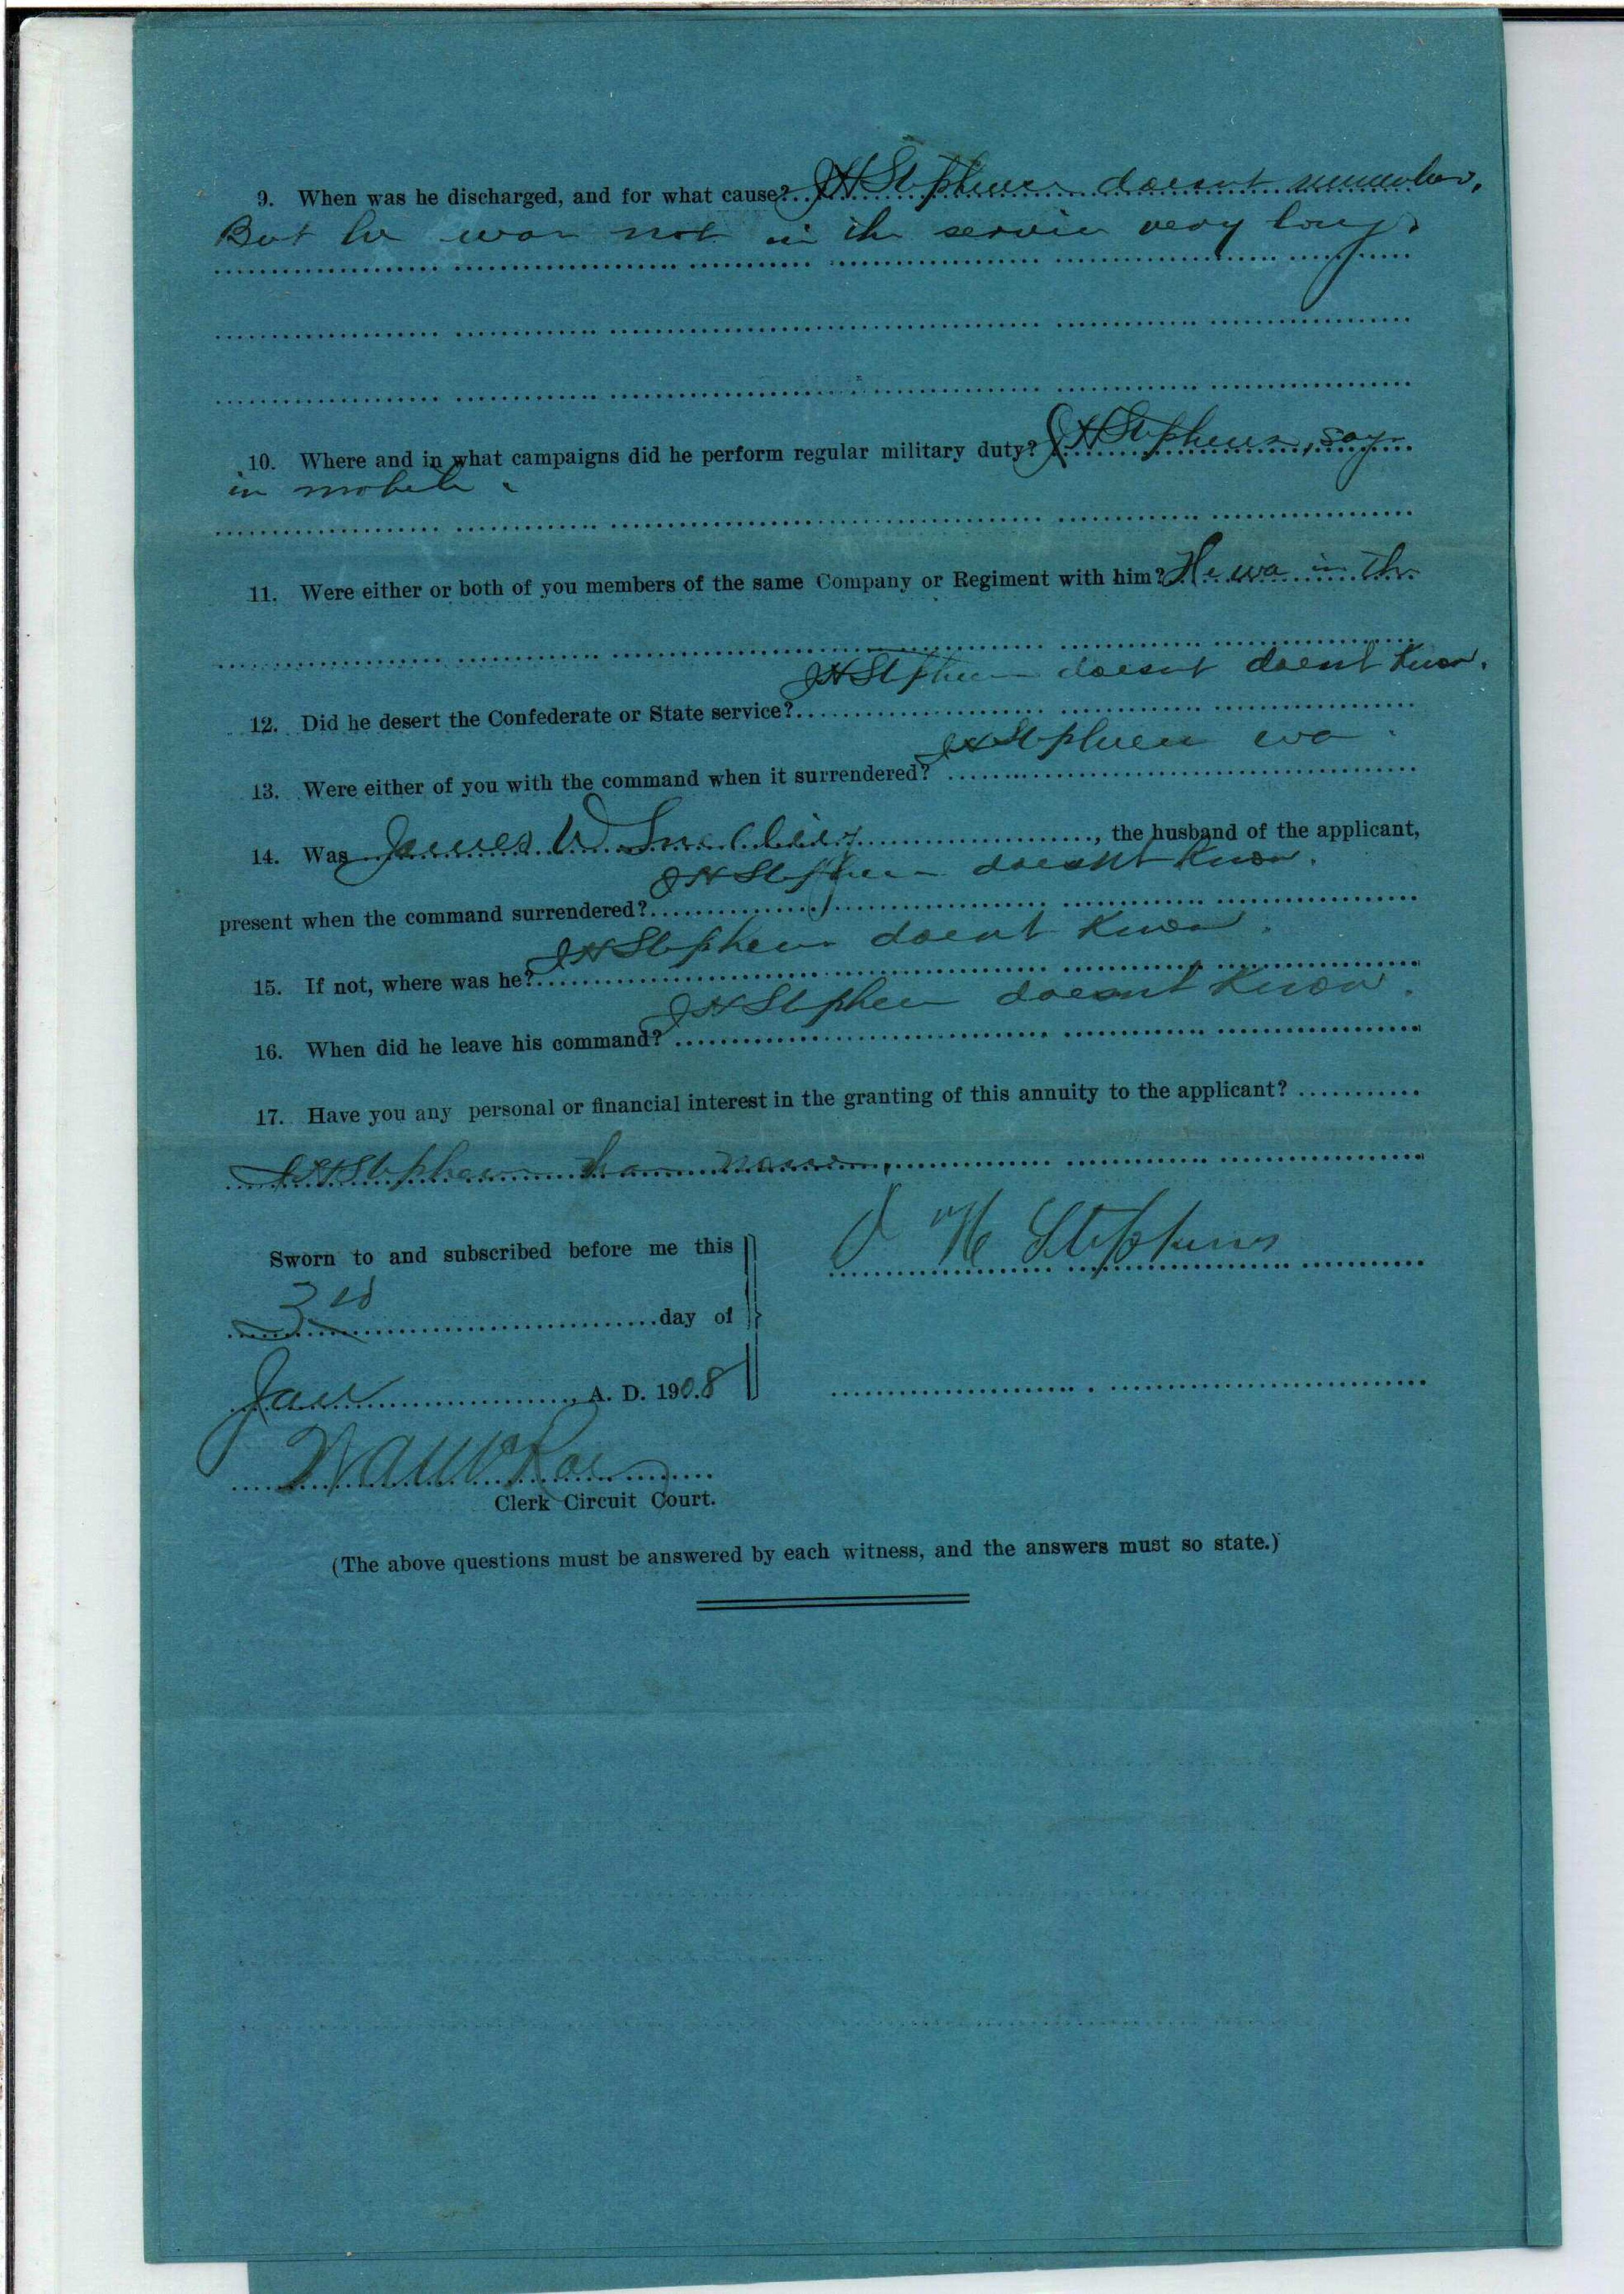 9. When was he discharged, and for what cause? J H Stephens doesnt remember.
But he was not in the service very long.
10. Where and in what campaigns did he perform regular military duty? J H Stephens, says
in mobile.
11. Were either or both of you members of the same Company or Regiment with him? He wa in the
J H Stephens doesnt doesnt Know.
12. Did he desert the Confederate or State service?
J H Stephens wa.
13. Were either of you with the command when it surrendered?
14. Was James W, the husband of the applicant,
J H Stephens doesnt Know.
present when the command surrendered?
J H Stephens doesnt Know.
15. If not, where was he?
J H Stephens doesnt Know.
16. When did he leave his command?
17. Have you any personal or financial interest in the granting of this annuity to the applicant?
J H Stephens has none.
Sworn to and subscribed before me this
J H Stephens
3rd day of
Jan A. D. 1908
Clerk Circuit Court.
(The above questions must be answered by each witness, and the answers must so state.)